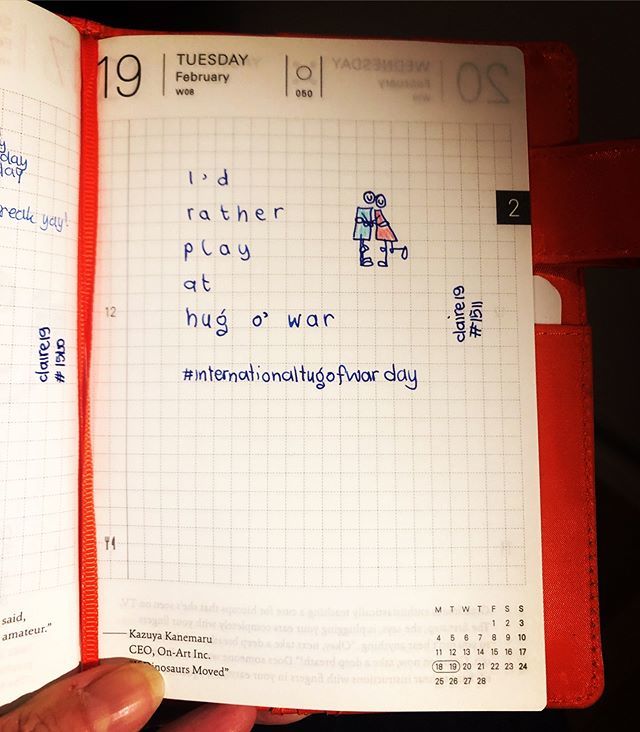 19
TUESDAY
February
W08
050
I'd
rather
play
at
hug o' war
#internationaltugofwar day
12
2
claire19
#1511
day
day
reak yay!
claire19
said,
amateur."
Kazuya Kanemaru
CEO, On-Art Inc.
Dinosaurs Moved"
M T W T F S S
1 2 3
4 5 6 7 8 9 10
11 12 13 14 15 16 17
18 19 20 21 22 23 24
25 26 27 28
WEDNESDAY
February
20